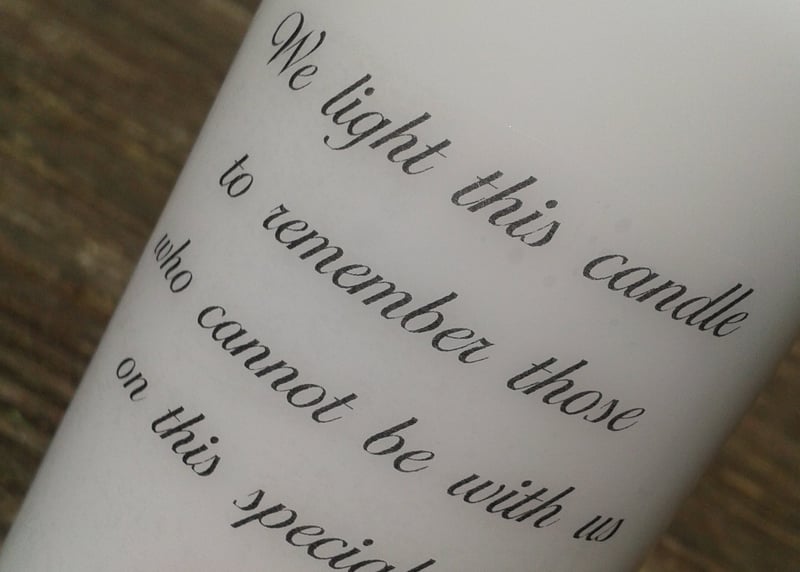 We light this candle
to remember those
who cannot be with us
on this special